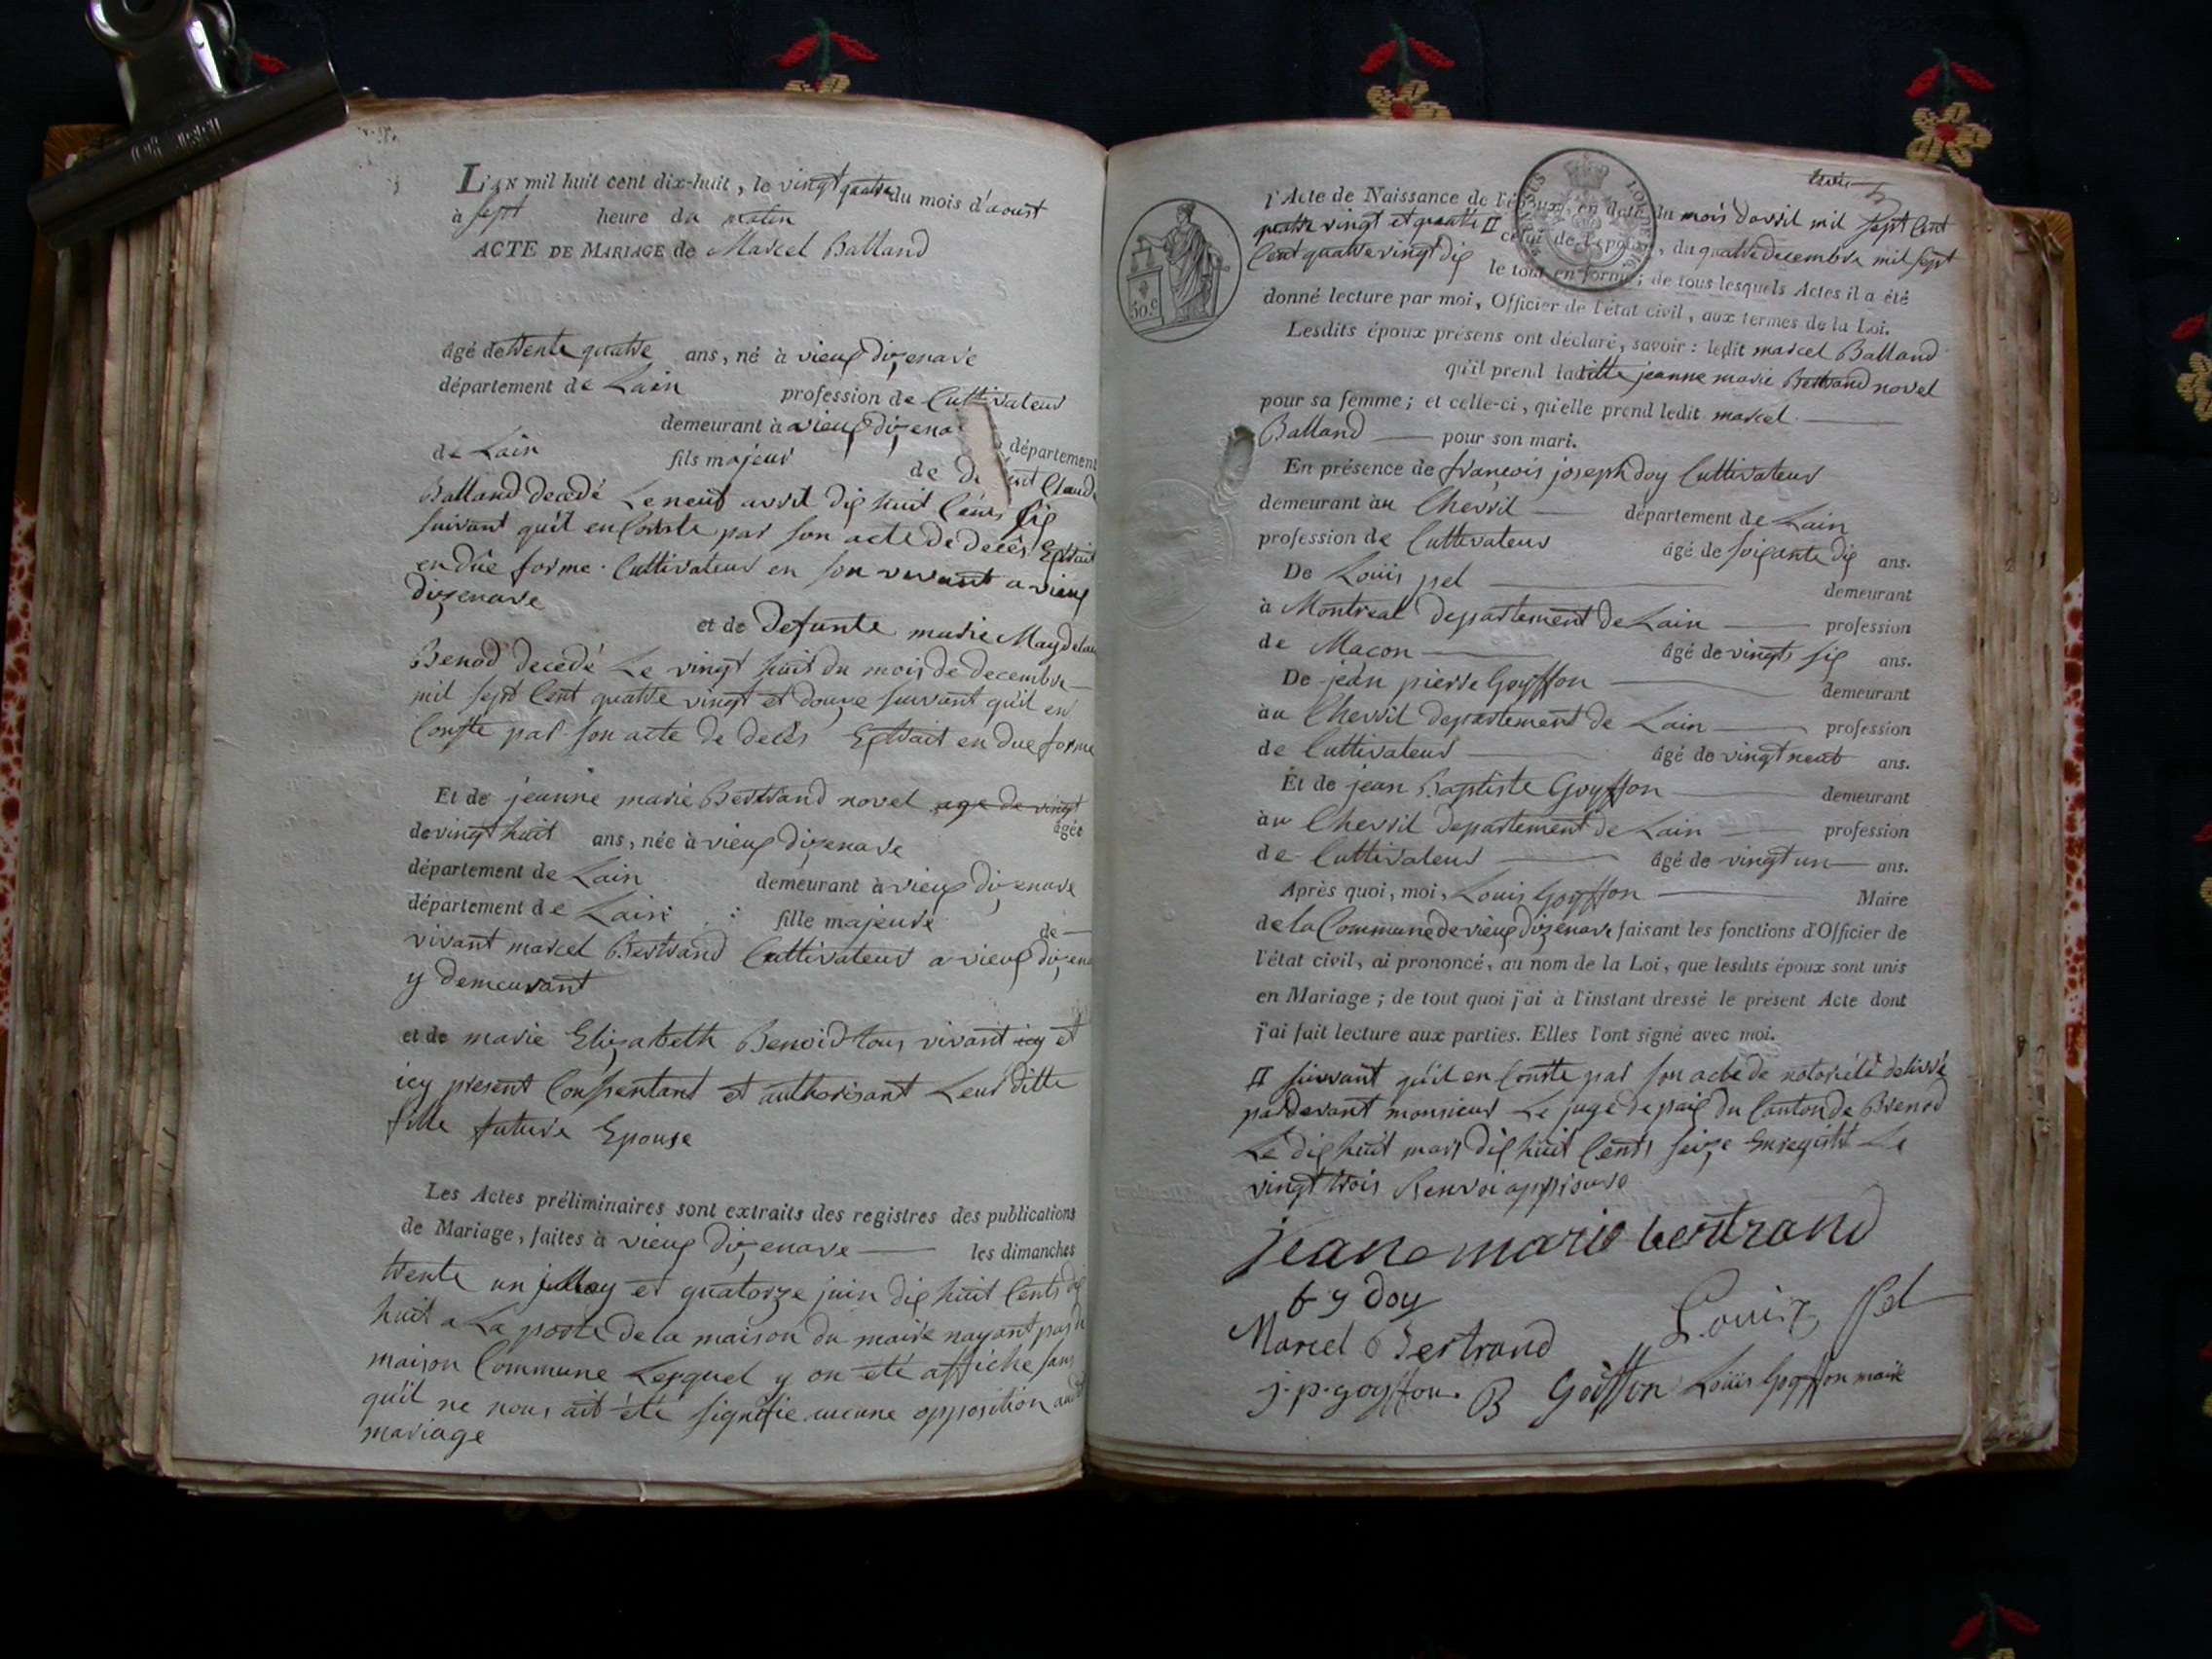 L'an mil huit cent dix-huit, le vingt quatre du mois d'aoust
à sept heure du matin
ACTE DE MARIAGE de Marcel Balland
âgé de trente quatre ans, né à vieux dizenave
département de Lain profession de Cultivateur
demeurant à vieux dizena département
de Lain fils majeur de Claude
Balland decedé Le neuf avril dix huit Cents six
suivant qu'il en Conste par son acte de decès Extrait
en dûe forme. Cultivateur en son vivant a vieux
dizenave
et de Defunte marie Magdelai
Benod decedé Le vingt huit du mois de decembre
mil sept Cent quatre vingt et douze suivant qu'il en
Conste par son acte de decès Extrait en due forme
Et de jeanne marie Bertrand novel age de vingt
âgée
de vingt huit ans, née à vieux dizenave
département de Lain demeurant à vieux dizenave
département de Lain fille majeure de
vivant marcel Bertrand Cultivateur a vieux dizena
y demeurant
et de marie Elizabeth Benoid tous vivant icy et
icy present Consentant et authorisant Leur ditte
fille future Epouse
Les Actes préliminaires sont extraits des registres des publications
de Mariage, faites à vieux dizenave les dimanches
trente un may et quatorze juin dix huit Cents dix
huit a La porte de la maison du maire nayant pas de
maison Commune Lesquel y on été affiche sans
qu'il ne nous ait été signifie aucune opposition audit
mariage
trois
l'Acte de Naissance de l'époux, en date du mois d'avril mil sept Cent
quatre vingt et quatre # celui de l'épouse, du quatre decembre mil sept
Cent quatre vingt dix le tout en forme; de tous lesquels Actes il a été
donné lecture par moi, Officier de l'état civil, aux termes de la Loi.
Lesdits époux présens ont déclaré, savoir: ledit marcel Balland
qu'il prend laditte jeanne marie Bertrand novel
pour sa femme; et celle-ci, qu'elle prend ledit marcel
Balland pour son mari.
En présence de françois joseph doy Cultivateur
demeurant au Chevril département de Lain
profession de Cultivateur âgé de soixante dix ans.
De Louis pel demeurant
à Montreal departement de Lain profession
de Macon âgé de vingts six ans.
De jean pierre Goyffon demeurant
au Chevril departement de Lain profession
de Cultivateur âgé de vingt neuf ans.
Et de jean Baptiste Goyffon demeurant
au Chevril departement de Lain profession
de Cultivateur âgé de vingt un ans.
Après quoi, moi, Louis Goyffon Maire
de la Commune de vieux dizenave faisant les fonctions d'Officier de
l'état civil, ai prononcé, au nom de la Loi, que lesdits époux sont unis
en Mariage; de tout quoi j'ai à l'instant dressé le présent Acte dont
j'ai fait lecture aux parties. Elles l'ont signé avec moi.
# suivant qu'il en Conste par son acte de notoriété delivré
pardevant monsieur Le juge de paix du Canton de Brenod
Le dix huit mars dix huit Cents seize Enregistré Le
vingt trois Renvoi approuvé
jeane marie bertrand
f y doy
Louis Pel
Marcel Bertrand
j. p. goyffon. B Goiffon Louis Goyffon maire
50.c